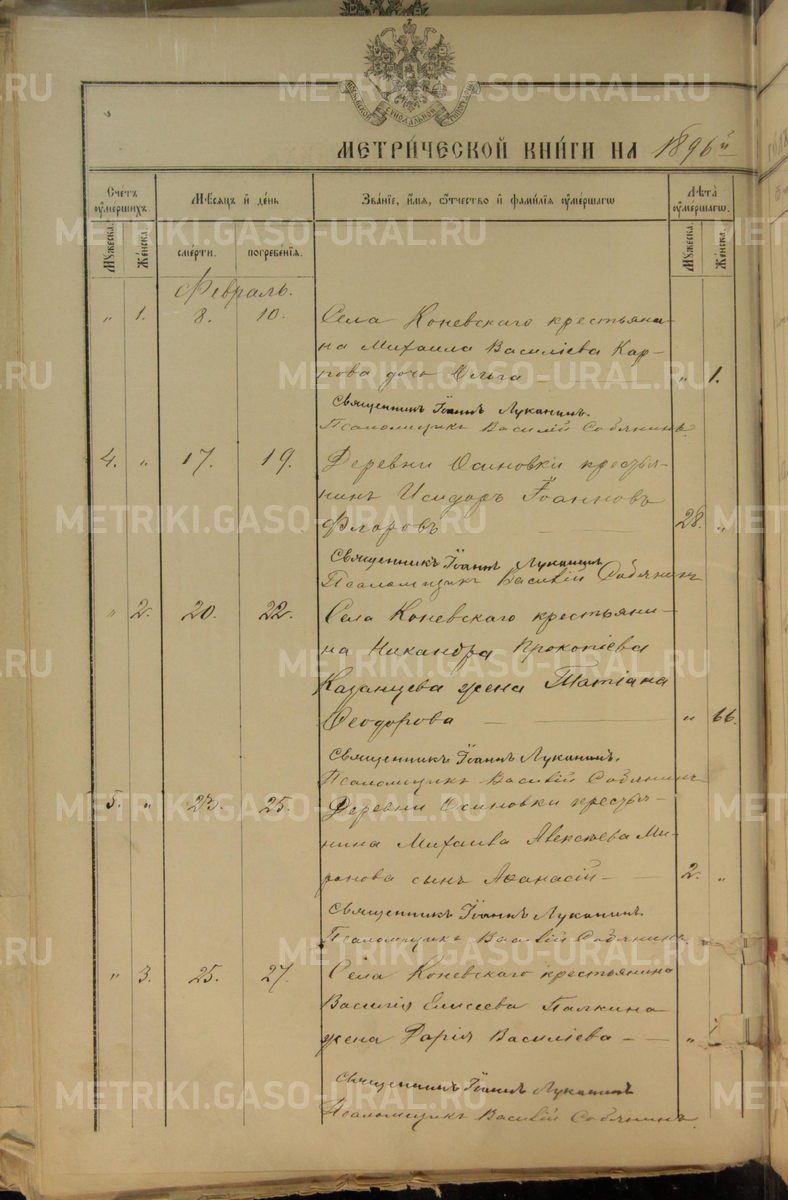 МЕТРИ́ЧЕСКОЙ КНИ́ГИ НА 1896й
Счётъ ᲂу҆ме́ршихъ.
Мꙋ́жеска.
Же́нска.
Мѣ́сяцъ и҆ де́нь
сме́рти.
погребе́нїя.
Зва́нїе, и҆́мя, ѻ҆́тчество и҆ фами́лїя ᲂу҆ме́ршагѡ
Лѣ́та ᲂу҆ме́ршагѡ.
Мꙋ́жеска.
Же́нска.
Февраль.
„ 1. 8. 10. Села Коневскаго крестьяни-
на Михаила Василіева Кар-
пова дочь Ольга — „ 1.
Священникъ Іоаннъ Луканинъ.
Псаломщикъ Василій Собянинъ
4. „ 17. 19. Деревни Осиновки крестья-
нинъ Исидоръ Іоанновъ
Флоровъ — 28. „
Священникъ Іоаннъ Луканинъ
Псаломщикъ Василій Собянинъ
„ 2. 20. 22. Села Коневскаго крестьяни-
на Никандра Прокопіева
Казанцева жена Татіана
Ѳеодорова — „ 66.
Священникъ Іоаннъ Луканинъ.
Псаломщикъ Василій Собянинъ
5. „ 23. 25. Деревни Осиновки крестья-
нина Михаила Алексѣева Ми-
ронова сынъ Аѳанасій — 2. „
Священникъ Іоаннъ Луканинъ.
Псаломщикъ Василій Собянинъ.
„ 3. 25. 27. Села Коневскаго крестьянина
Василія Елисеева Палкина
жена Дарія Василіева — „
Священникъ Іоаннъ Луканинъ
Псаломщикъ Василій Собянинъ
METRIKI.GASO-URAL.RU